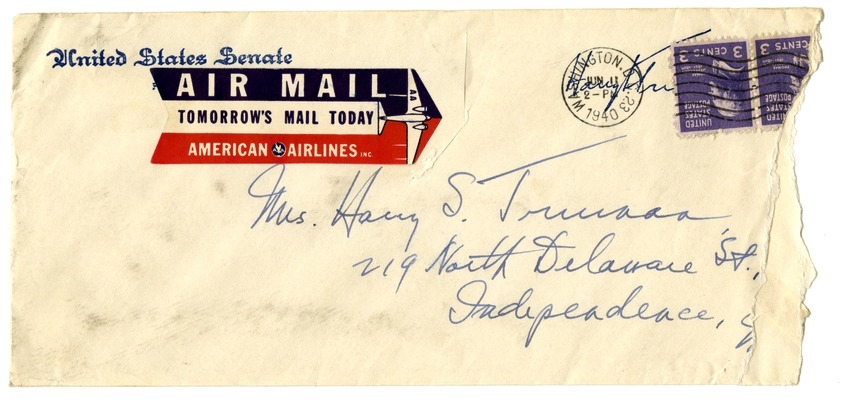 United States Senate
AIR MAIL
AA
TOMORROW'S MAIL TODAY
AMERICAN AIRLINES INC.
WASHINGTON, D.C. 23
JUN 11
2-PM
1940
3 CENTS 3
UNITED STATES POSTAGE
CENTS 3
UNITED STATES POSTAGE
Mrs. Harry S. Truman
219 North Delaware St.,
Independence,